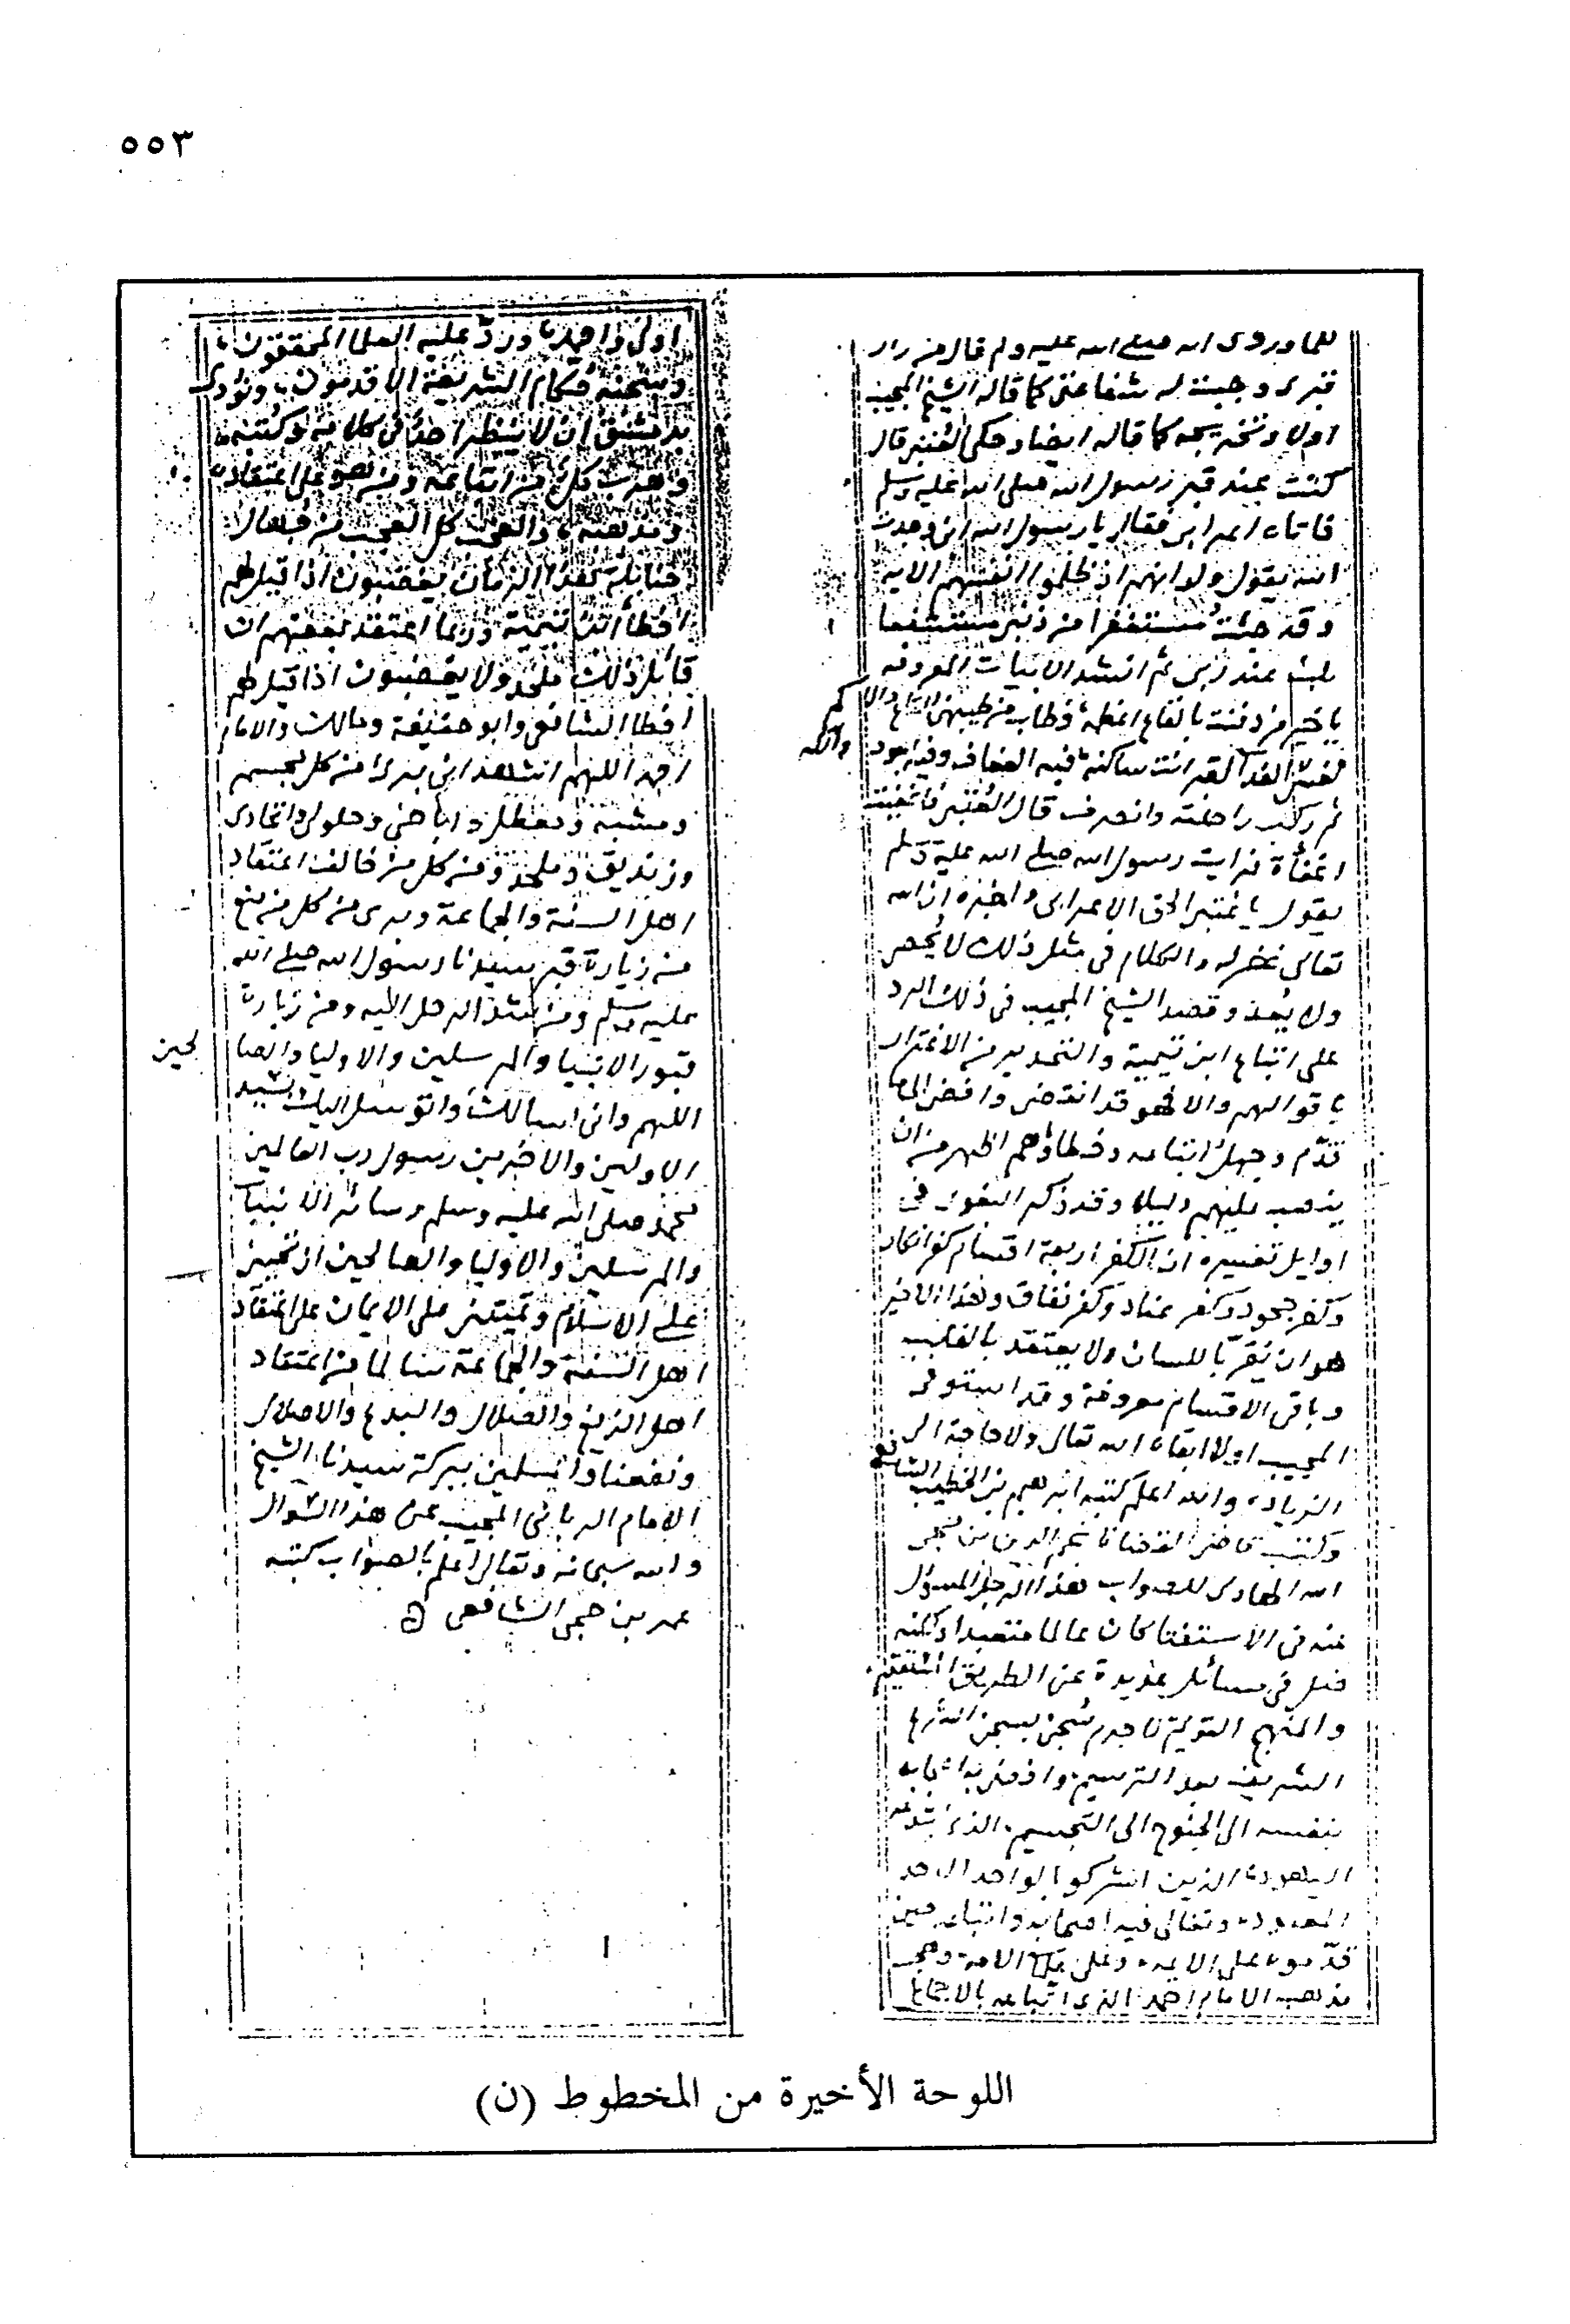 ٥٥٣
للماوردى انه صلى الله عليه وسلم قال من زار
قبرى وجبت له شفاعتى كما قاله الشيخ المجيب
اولا وتخريجه كما قاله ايضا وحكى العتبى قال
كنت عند قبر رسول الله صلى الله عليه وسلم
فاتاه اعرابى فقال يا رسول الله انى وجدت
الله يقول ولو انهم اذ ظلموا انفسهم الاية
وقد جئت مستغفرا من ذنبى مستشفعا
بك عند ربى ثم انشد الابيات المعروفه
يا خير من دفنت بالقاع اعظمه فطاب من طيبهن القاع والاكم
نفسى الفدا لقبر انت ساكنه فيه العفاف وفيه الجود والكرم
ثم ركب راحلته وانصرف قال العتبى
اغفاة فرايت رسول الله صلى الله عليه وسلم
يقول يا عتبى الحق الاعرابى واخبره ان الله
تعالى غفر له والكلام فى مثل ذلك لا يحصر
ولا يعد وقصد الشيخ المجيب فى ذلك الرد
على اتباع ابن تيمية والتحذير من الاغترار
باقوالهم والا فهو قد انقضى وافضى الى ما
قدم وجهل اتباعه وخطاؤهم اظهر من ان
ينصب عليهم دليلا وقد ذكر البغوى فى
اوايل تفسيره ان الكفر اربعة اقسام كفر انكار
وكفر جحود وكفر عناد وكفر نفاق وهذا الاخير
هو ان يقر باللسان ولا يعتقد بالقلب
وباقى الاقسام معروفة وقد استوفى
المجيب اولا ابقاه الله تعالى ولا حاجة الى
الزيادة والله اعلم كتبه ابرهيم بن الخطيب الشافعى
وكتب قاضى القضاة نجم الدين بن حجى
الله الهادى للصواب هذا الرجل المسؤل
عنه فى الاستفتا كان عالما متعبدا ولكنه
ضل فى مسائل عديدة عن الطريق المستقيم
والمنهج القويم لا جرم سجن بسجن الشرع
الشريف بعد الترسيم وافضى به اعجابه
بنفسه الى الجنوح الى التجسيم الذى ابتدعه
اليهود الذين اشركوا بالواحد الاحد
المعبود وتغالى فيه اصحابه واتباعه حتى
قدموه على الايمه وعلى علما الامه وهجر
مذهب الامام احمد الذى اتباعه بالاجماع
اولى واحمد ورد عليه العلما المحققون
وسجنه حكام الشريعة الاقدمون ونودى
بدمشق ان لا ينظر احد فى كلامه وكتبه
وهرب كل من اتباعه ومن هو على اعتقاده
ومذهبه والعجب كل العجب من جهال
حنابلة هذا الزمان يغضبون اذا قيل لهم
اخطأ ابن تيمية وربما اعتقد بعضهم ان
قائل ذلك ملحد ولا يغضبون اذا قيل لهم
اخطا الشافعى وابو حنيفة ومالك والامام
احمد اللهم انى اشهد انى برى من كل مجسم
ومشبه ومعطل واباحى وحلولى واتحادى
وزنديق وملحد ومن كل من خالف اعتقاد
اهل السنة والجماعة وبرى من كل من منع
من زيارة قبر سيدنا رسول الله صلى الله
عليه وسلم ومن شد الرحل اليه ومن زيارة
قبور الانبيا والمرسلين والاوليا والصالحين
اللهم وانى اسالك واتوسل اليك بسيد
الاولين والاخرين رسول رب العالمين
محمد صلى الله عليه وسلم وسائر الانبيا
والمرسلين والاوليا والصالحين ان تحيينى
على الاسلام وتميتنى على الايمان على اعتقاد
اهل السنة والجماعة سالما من اعتقاد
اهل الزيغ والضلال والبدع والاضلال
ونفعنا والمسلمين ببركة سيدنا الشيخ
الامام الربانى المجيب عن هذا السوال
والله سبحانه وتعالى اعلم بالصواب كتبه
عمر بن حجى الشافعى
اللوحة الأخيرة من المخطوط (ن)